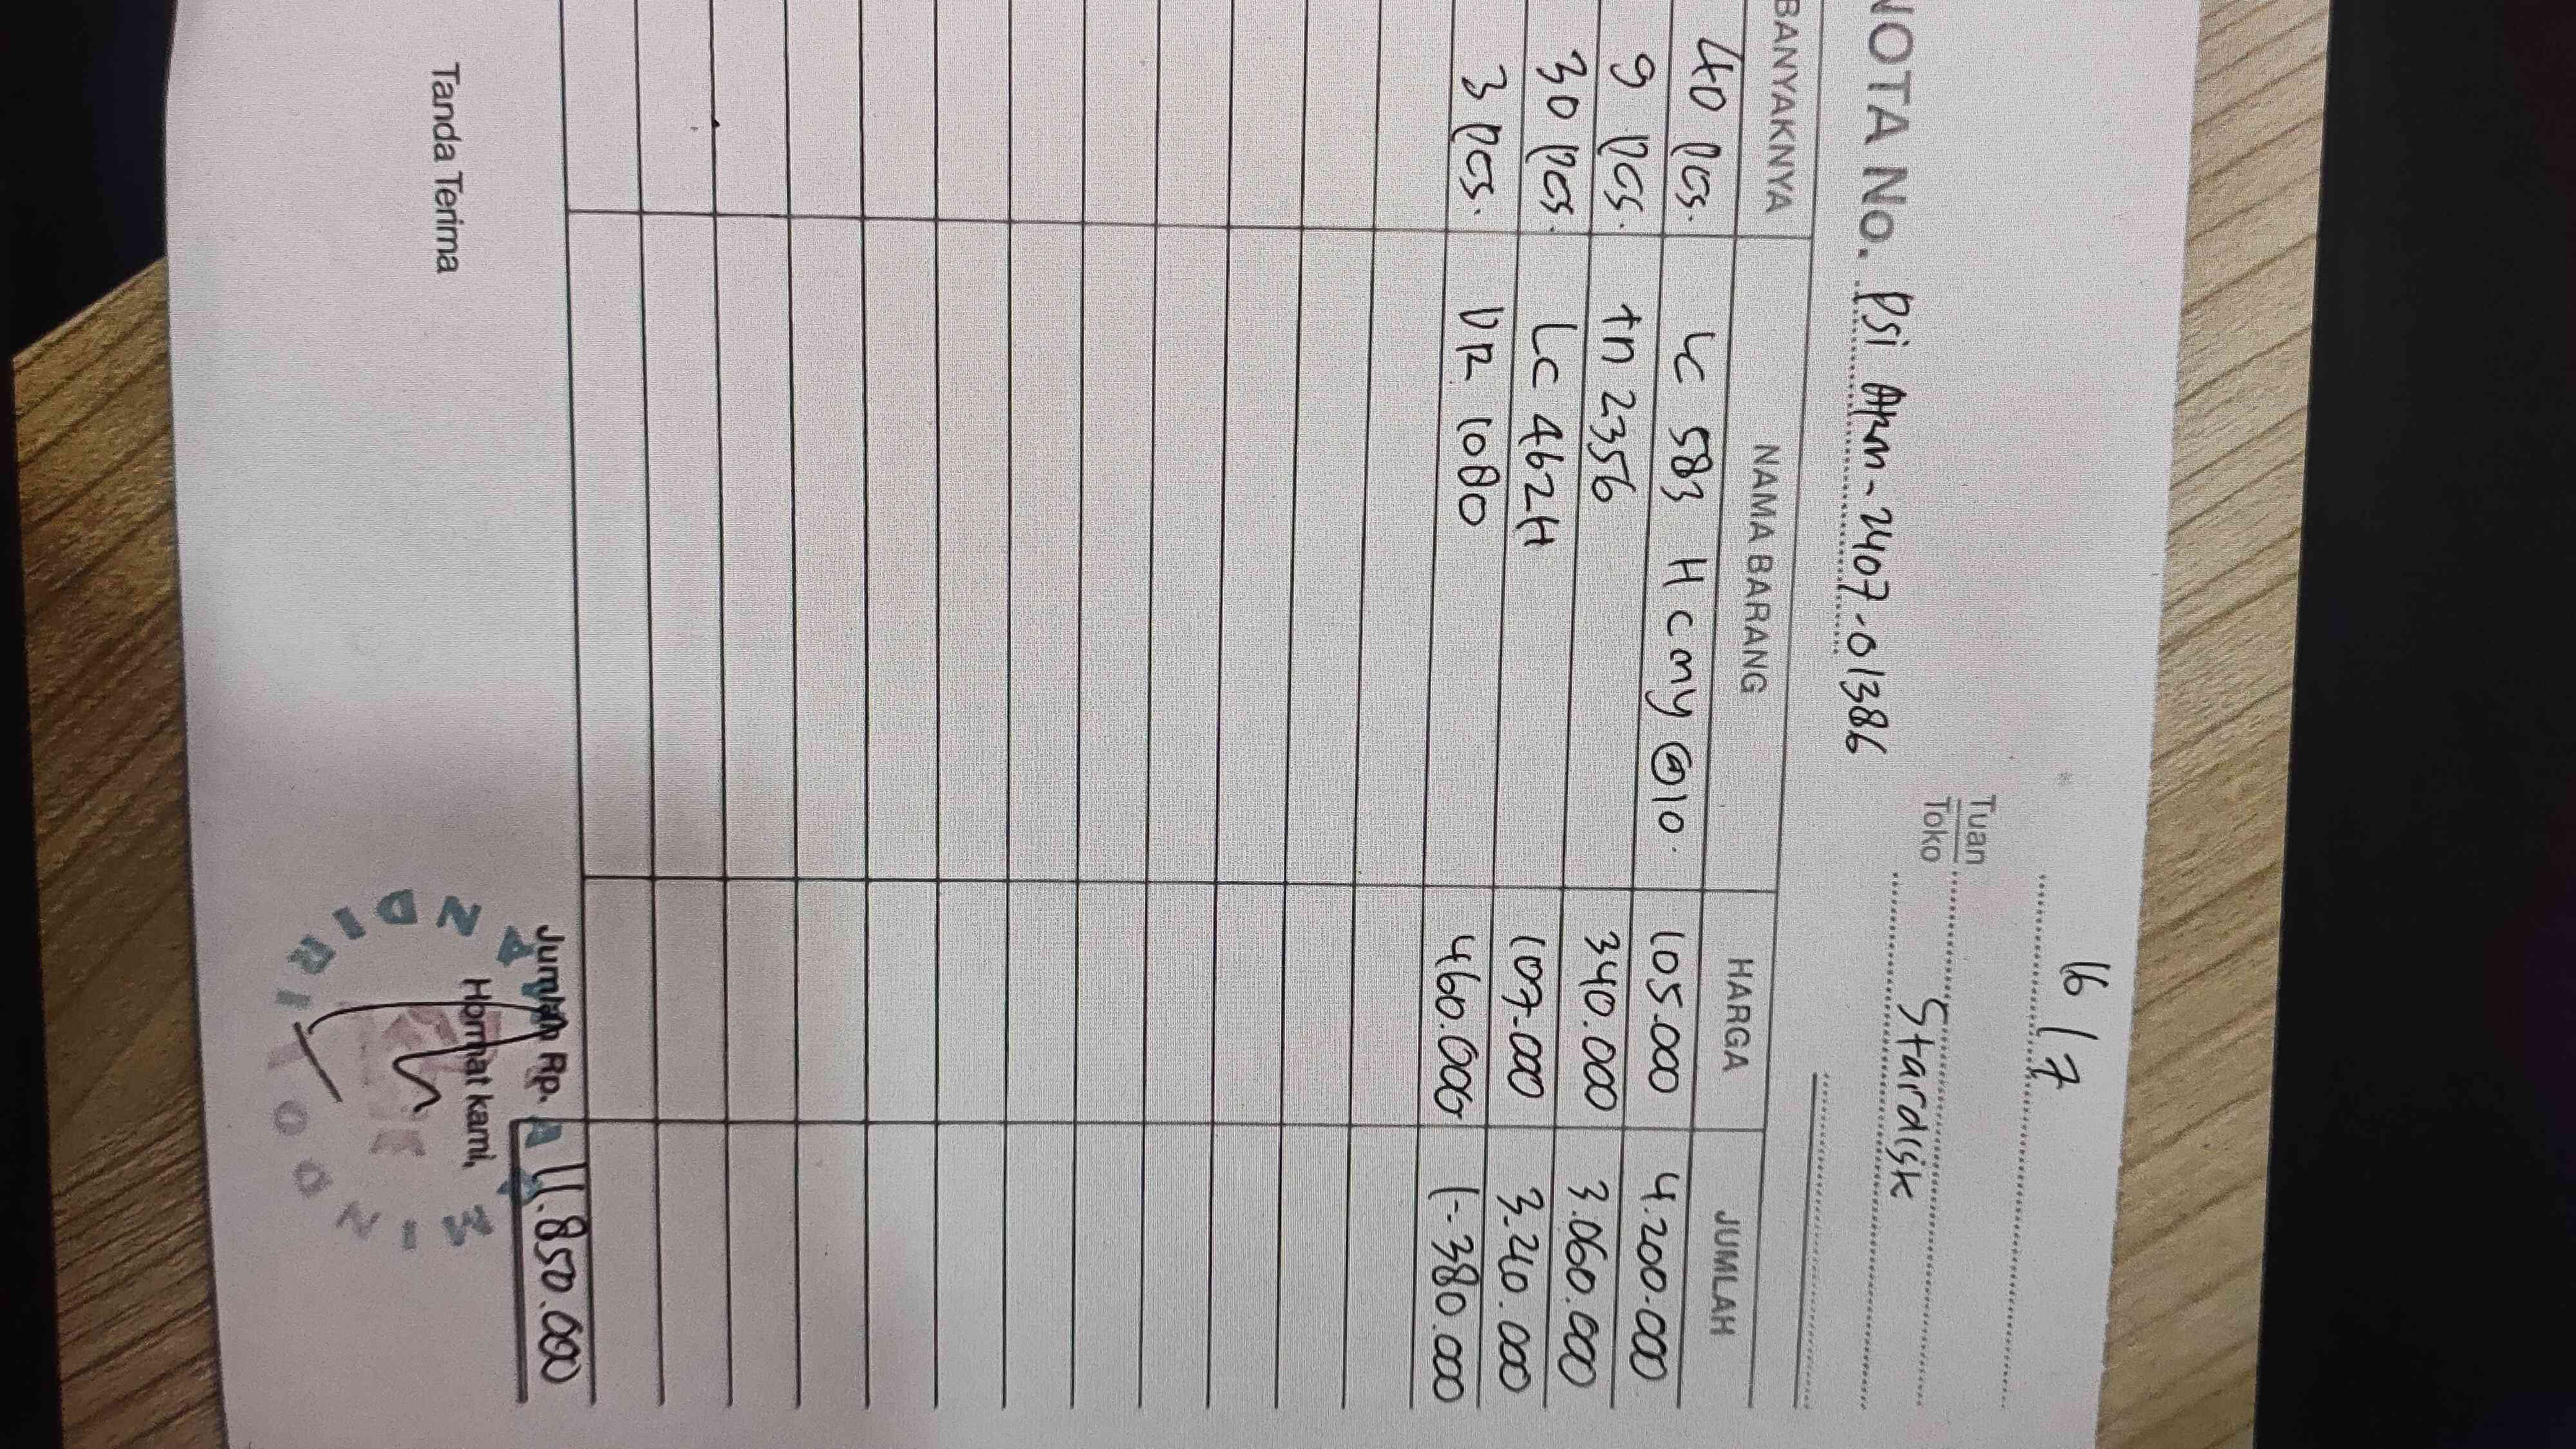 16/7
Tuan
Toko Stardisk
NOTA No. Psi Arm-2407-01386
BANYAKNYA NAMA BARANG HARGA JUMLAH
40 pcs. Lc 583 H cmy @10. 105.000 4.200.000
9 pcs. tn 2356 340.000 3.060.000
30 pcs. Lc 462H 107.000 3.210.000
3 pcs. DR 1080 460.000 1.380.000
Jumlah Rp. 11.850.000
Tanda Terima Hormat kami,